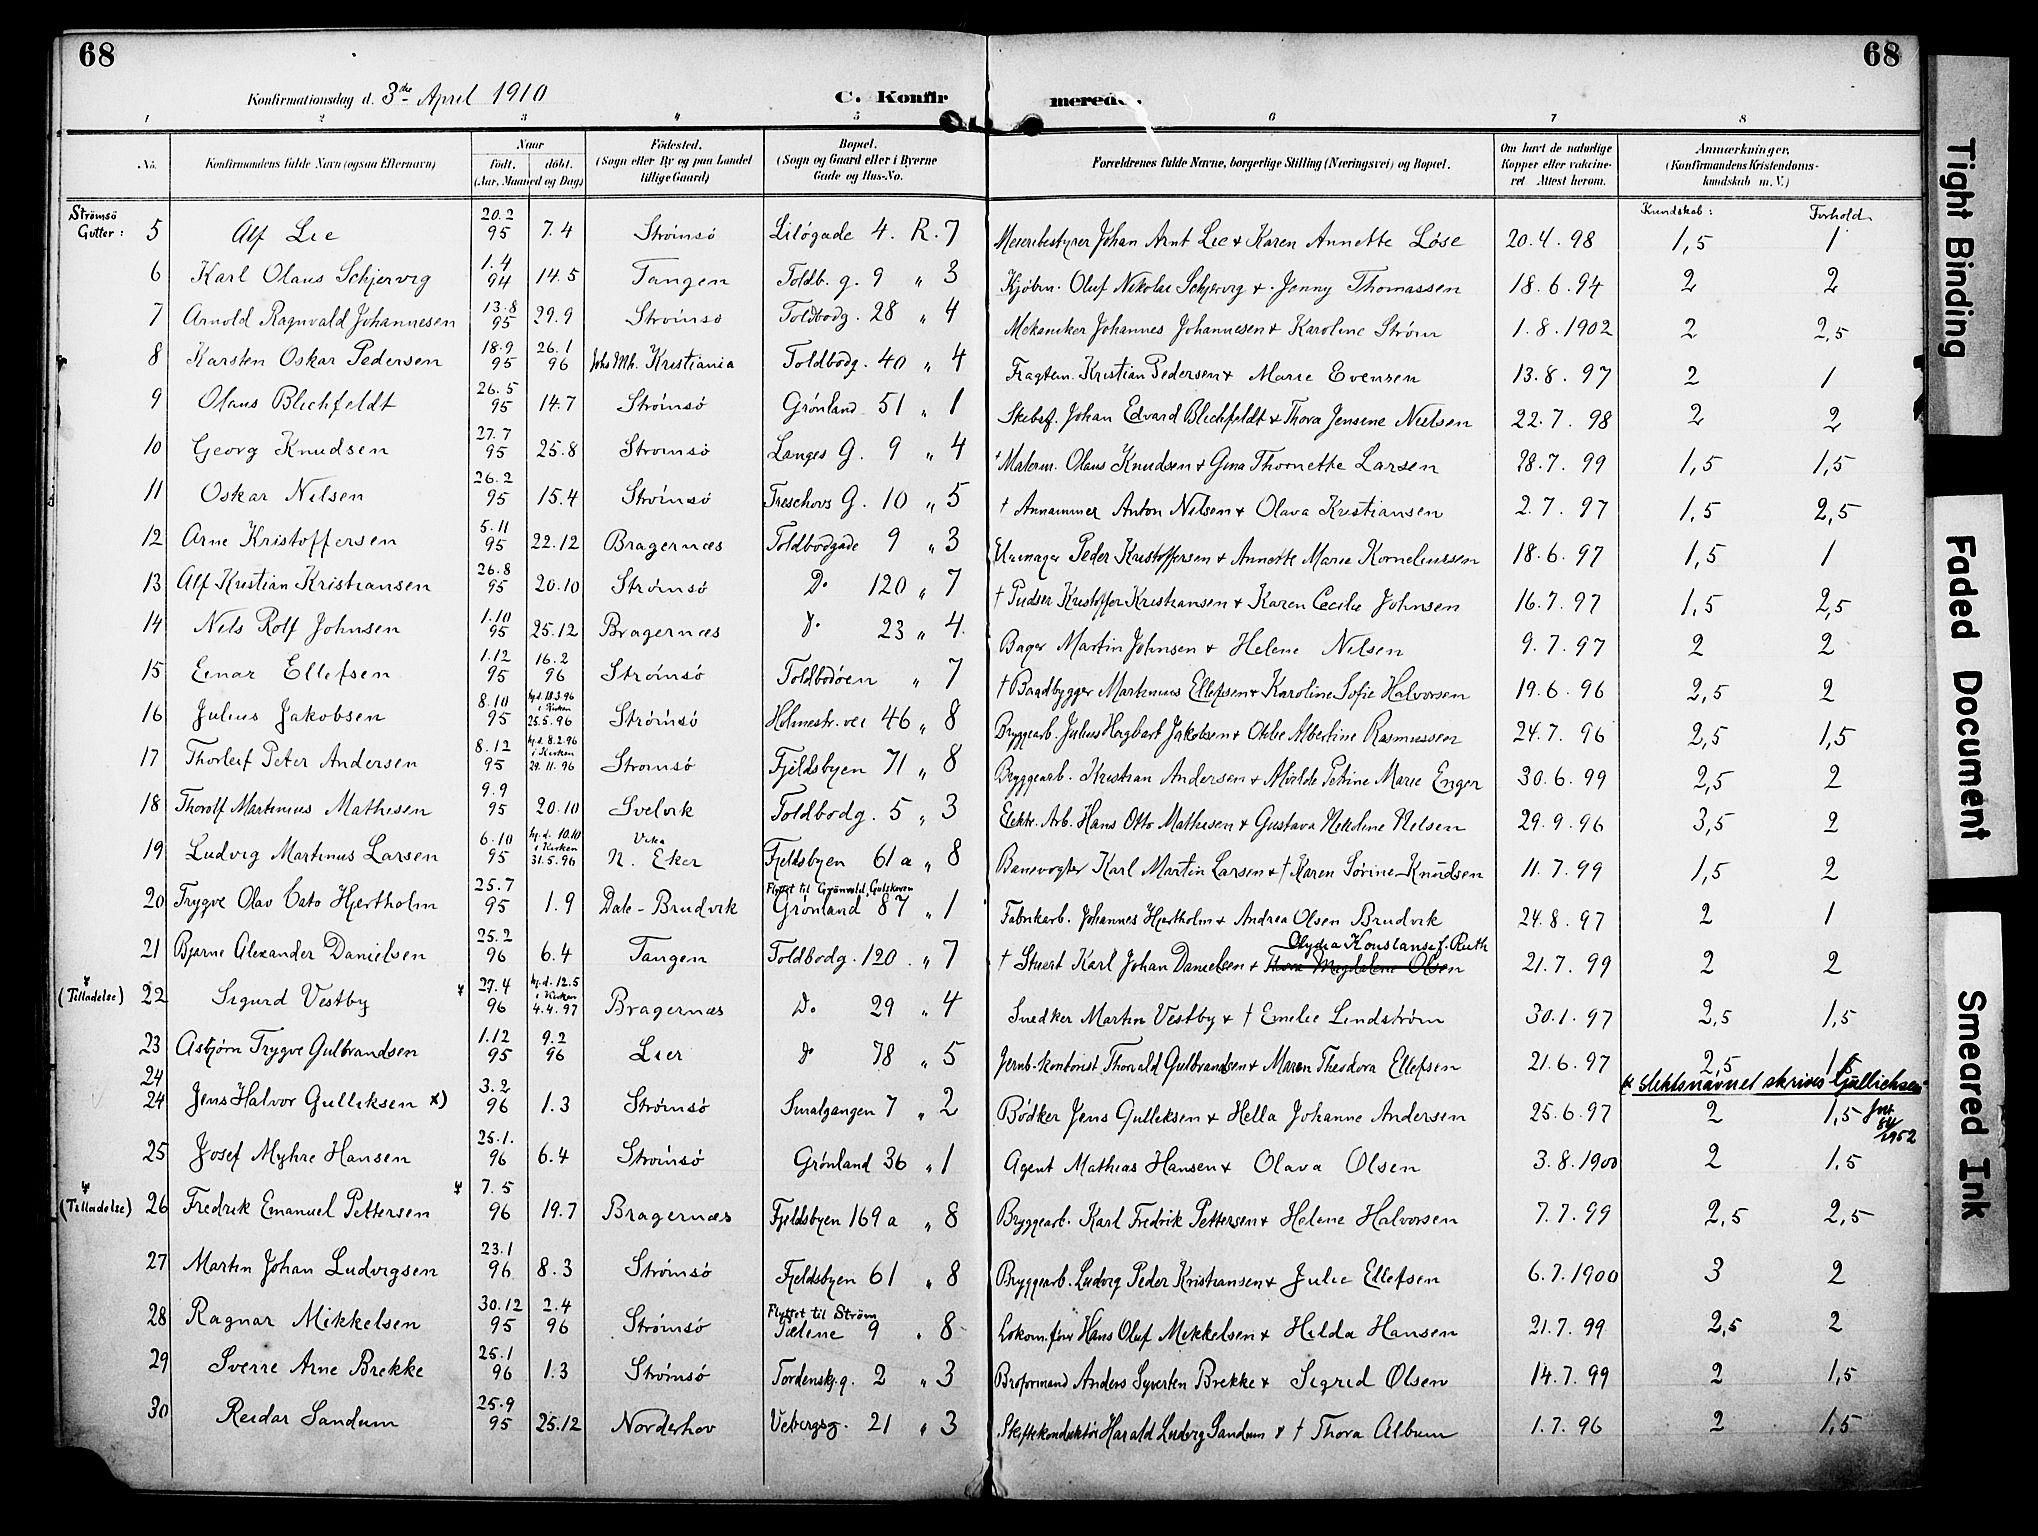 68
68
Konfirmationsdag d. 3die April 1910
C. Konfirmerede.
1 2 3 4 5 6 7 8
No.
Konfirmandens fulde Navn (ogsaa Efternavn)
Naar
født. døbt.
(Aar, Maaned og Dag)
Fødested.
(Sogn eller By og paa Landet
tillige Gaard)
Bopæl.
(Sogn og Gaard eller i Byerne
Gade og Hus-No.
Forældrenes fulde Navne, borgerlige Stilling (Næringsvei) og Bopæl.
Om havt de naturlige
Kopper eller vaccine-
ret Attest herom.
Anmærkninger.
(Konfirmandens Kristendoms-
kundskab m. V.)
Kundskab: Forhold
Strømsö
Gutter: 5 Alf Lie 20.2 95 7.4 Strömsö Lilögade 4. R. 7 Meieribestyrer Johan Arnt Lie & Karen Annette Löse 20.4.98 1,5 1
6 Karl Olaus Schjervig 1.4 94 14.5 Tangen Toldb. g. 9 " 3 Kjöbm. Oluf Nikolai Schjervig & Jenny Thomassen 18.6.94 2 2
7 Arnold Ragnvald Johannesen 13.8 95 29.9 Strömsö Toldbodg. 28 " 4 Mekaniker Johannes Johannesen & Karoline Ström 1.8.1902 2 2,5
8 Karsten Oskar Pedersen 18.9 95 26.1 96 Johs Mh. Kristiania Toldbodg. 40 " 4 Fragtem. Kristian Pedersen & Marie Evensen 13.8.97 2 1
9 Olaus Blichfeldt 26.5 95 14.7 Strömsö Grönland 51 " 1 Skibsf. Johan Edvard Blichfeldt & Thora Jensine Nielsen 22.7.98 2 2
10 Georg Knudsen 27.7 95 25.8 Strömsö Langes G. 9 " 4 † Malerm. Olaus Knudsen & Gina Thornette Larsen 28.7.99 1,5 1,5
11 Oskar Nilsen 26.2 95 15.4 Strömsö Treschovs G. 10 " 5 † Annammer Anton Nilsen & Olava Kristiansen 2.7.97 1,5 2,5
12 Arne Kristoffersen 5.11 95 22.12 Bragernæs Toldbodgade 9 " 3 Urmager Peder Kristoffersen & Annette Marie Korneliussen 18.6.97 1,5 1
13 Alf Kristian Kristiansen 26.8 95 20.10 Strömsö Do 120 " 7 † Pudser Kristoffer Kristiansen & Karen Cecilie Johnsen 16.7.97 1,5 2,5
14 Nils Rolf Johnsen 1.10 95 25.12 Bragernæs Do 23 " 4 Bager Martin Johnsen & Helene Nilsen 9.7.97 2 2
15 Einar Ellefsen 1.12 95 16.2 96 Strömsö Toldbodöen " 7 † Baadbygger Martinius Ellefsen & Karoline Sofie Halvorsen 19.6.96 2,5 2
16 Julius Jakobsen 8.10 95 hj.d. 18.3.96 i Kirken 25.5.96 Strömsö Holmestr. vei 46 " 8 Bryggearb. Julius Hagbart Jakobsen & Othe Albertine Rasmussen 24.7.96 2,5 1,5
17 Thorleif Peter Andersen 8.12 95 hj.d. 8.2.96 i Kirken 29.11.96 Strömsö Fjeldsbyen 71 " 8 Bryggearb. Kristian Andersen & Alvilde Petrine Marie Enger 30.6.99 2,5 2
18 Thorolf Martinius Mathisen 9.9 95 20.10 Svelvik Toldbodg. 5 " 3 Elektr. Arb. Hans Otto Mathisen & Gustava Nikoline Nelsen 29.9.96 3,5 2
19 Ludvig Martinus Larsen 6.10 95 hj.d. 10.10 i Kirken 31.5.96 Vika N. Eker Fjeldsbyen 61 a " 8 Banevogter Karl Martin Larsen & † Karen Sörine Knudsen 11.7.99 1,5 2
Flyttet til Grönvold, Gulskoven
20 Trygve Olav Cato Hjertholm 25.7 95 1.9 Dale - Brudvik Grönland 87 " 1 Fabrikarb. Johannes Hjertholm & Andrea Olsen Brudvik 24.8.97 2 1
Olydia Konstanse f. Ruth
21 Bjarne Alexander Danielsen 25.2 96 6.4 Tangen Toldbodg. 120 " 7 † Stuert Karl Johan Danielsen & Thora Magdalene Olsen 21.7.99 2 2
(Tilladelse) 22 Sigurd Vestby 27.4 96 hj.d. 12.5 i Kirken 4.4.97 Bragernæs Do 29 " 4 Snedker Martin Vestby & † Emilie Lindström 30.1.97 2,5 1,5
23 Asbjörn Trygve Gulbrandsen 1.12 95 9.2 96 Lier Do 78 " 5 Jernb. kontorist Thorvald Gulbrandsen & Maren Theodora Ellefsen 21.6.97 2,5 1,5
24
x Slektsnavnet skrives Gullichsen
24 Jens Halvor Gulliksen x) 3.2 96 1.3 Strömsö Smalgangen 7 " 2 Bödker Jens Gulleksen & Hella Johanne Andersen 25.6.97 2 1,5
1952
25 Josef Myhre Hansen 25.1. 96 6.4 Strömsö Grönland 36 " 1 Agent Mathias Hansen & Olava Olsen 3.8.1900 2 1,5
(Tilladelse) 26 Fredrik Emanuel Pettersen 7.5 96 19.7 Bragernæs Fjeldsbyen 169 a " 8 Bryggearb. Karl Fredrik Pettersen & Helene Halvorsen 7.7.99 2,5 2,5
27 Martin Johan Ludvigsen 23.1 96 8.3 Strömsö Fjeldsbyen 61 " 8 Bryggearb. Ludvig Peder Kristiansen & Julie Ellefsen 6.7.1900 3 2
Flyttet til Ström
28 Ragnar Mikkelsen 30.12 95 2.4 96 Strömsö Pælene 9 " 8 Lokom.före Hans Oluf Mikkelsen & Hilda Hansen 21.7.99 2,5 2
29 Sverre Arne Brekke 25.1 96 1.3 Strömsö Tordenskj.g. 2 " 3 Broformand Anders Syverten Brekke & Sigrid Olsen 14.7.99 2 1,5
30 Reidar Sandum 25.9 95 25.12 Norderhov Vebergsg. 21 " 3 Skiftekonduktör Harald Ludvig Sandum & † Thora Album 1.7.96 2 1,5
Tight Binding
Faded Document
Smeared Ink